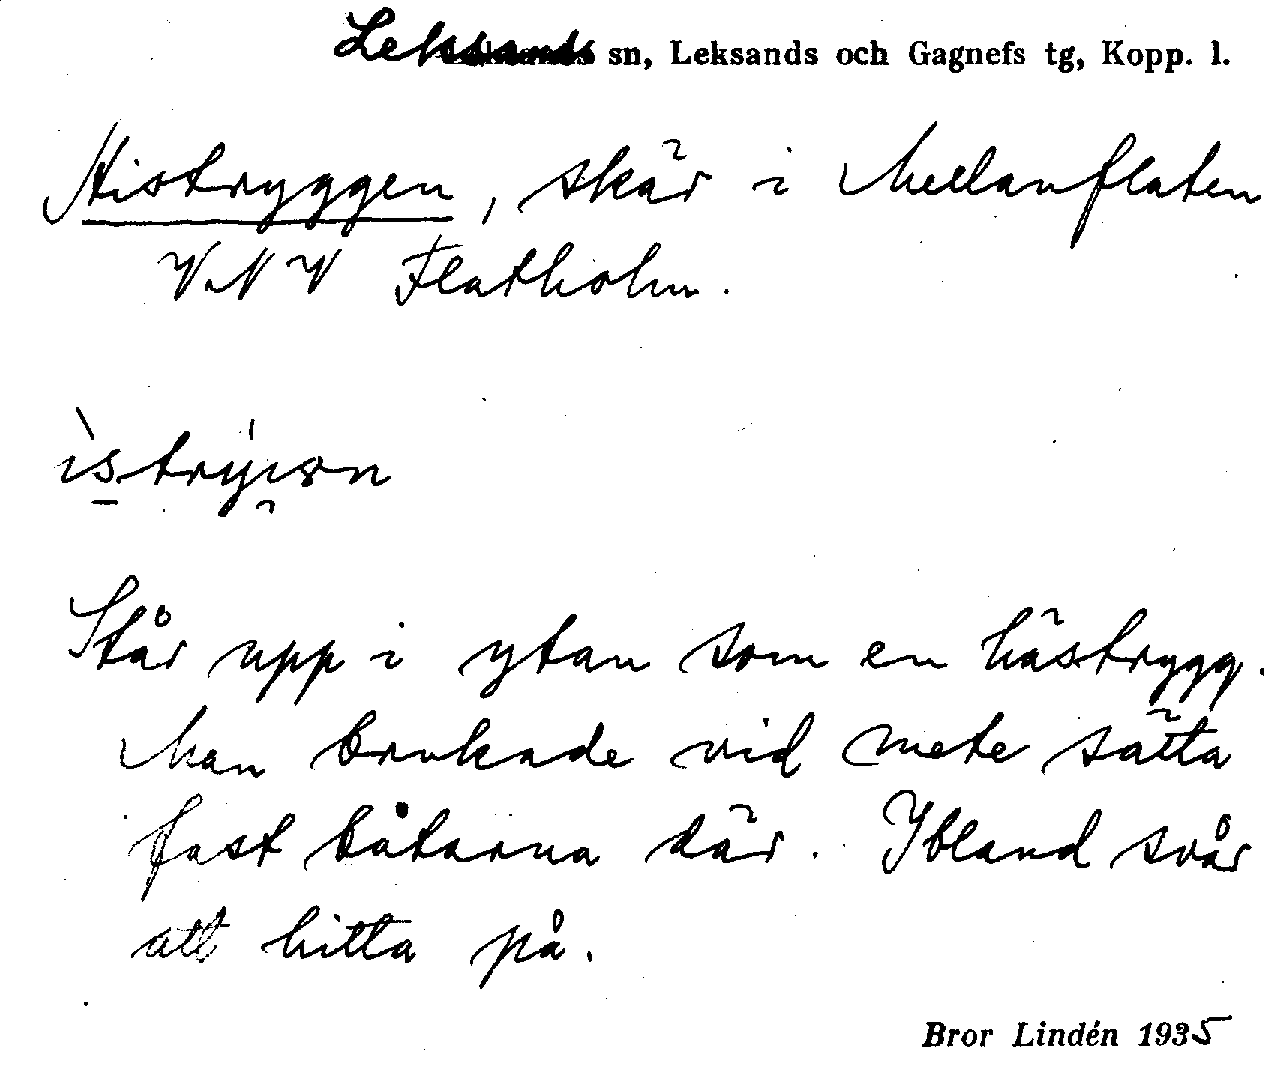 Leksands sn, Leksands och Gagnefs tg, Kopp. l.
Histryggen, skär i Mellanflaten
V.NV Flatholm.
Står upp i ytan som en hästrygg.
Man brukade vid mete sätta
fast båtarna där. Ibland svår
att hitta på.
Bror Lindén 1935